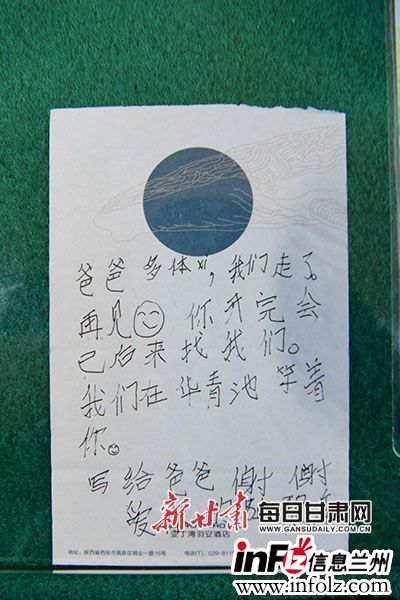 爸爸 多体xi，我们走了
再见 你开完会
己后来找我们。
我们在华青池等着
你。
写给爸爸 谢谢
爱
新甘肃
每日甘肃网
WWW.GANSUDAILY.COM.CN
亚丁湾羽安酒店
地址：陕西省西安市高新区锦业一路16号 电话(T)：029-811
infLz 信息兰州
www.infolz.com